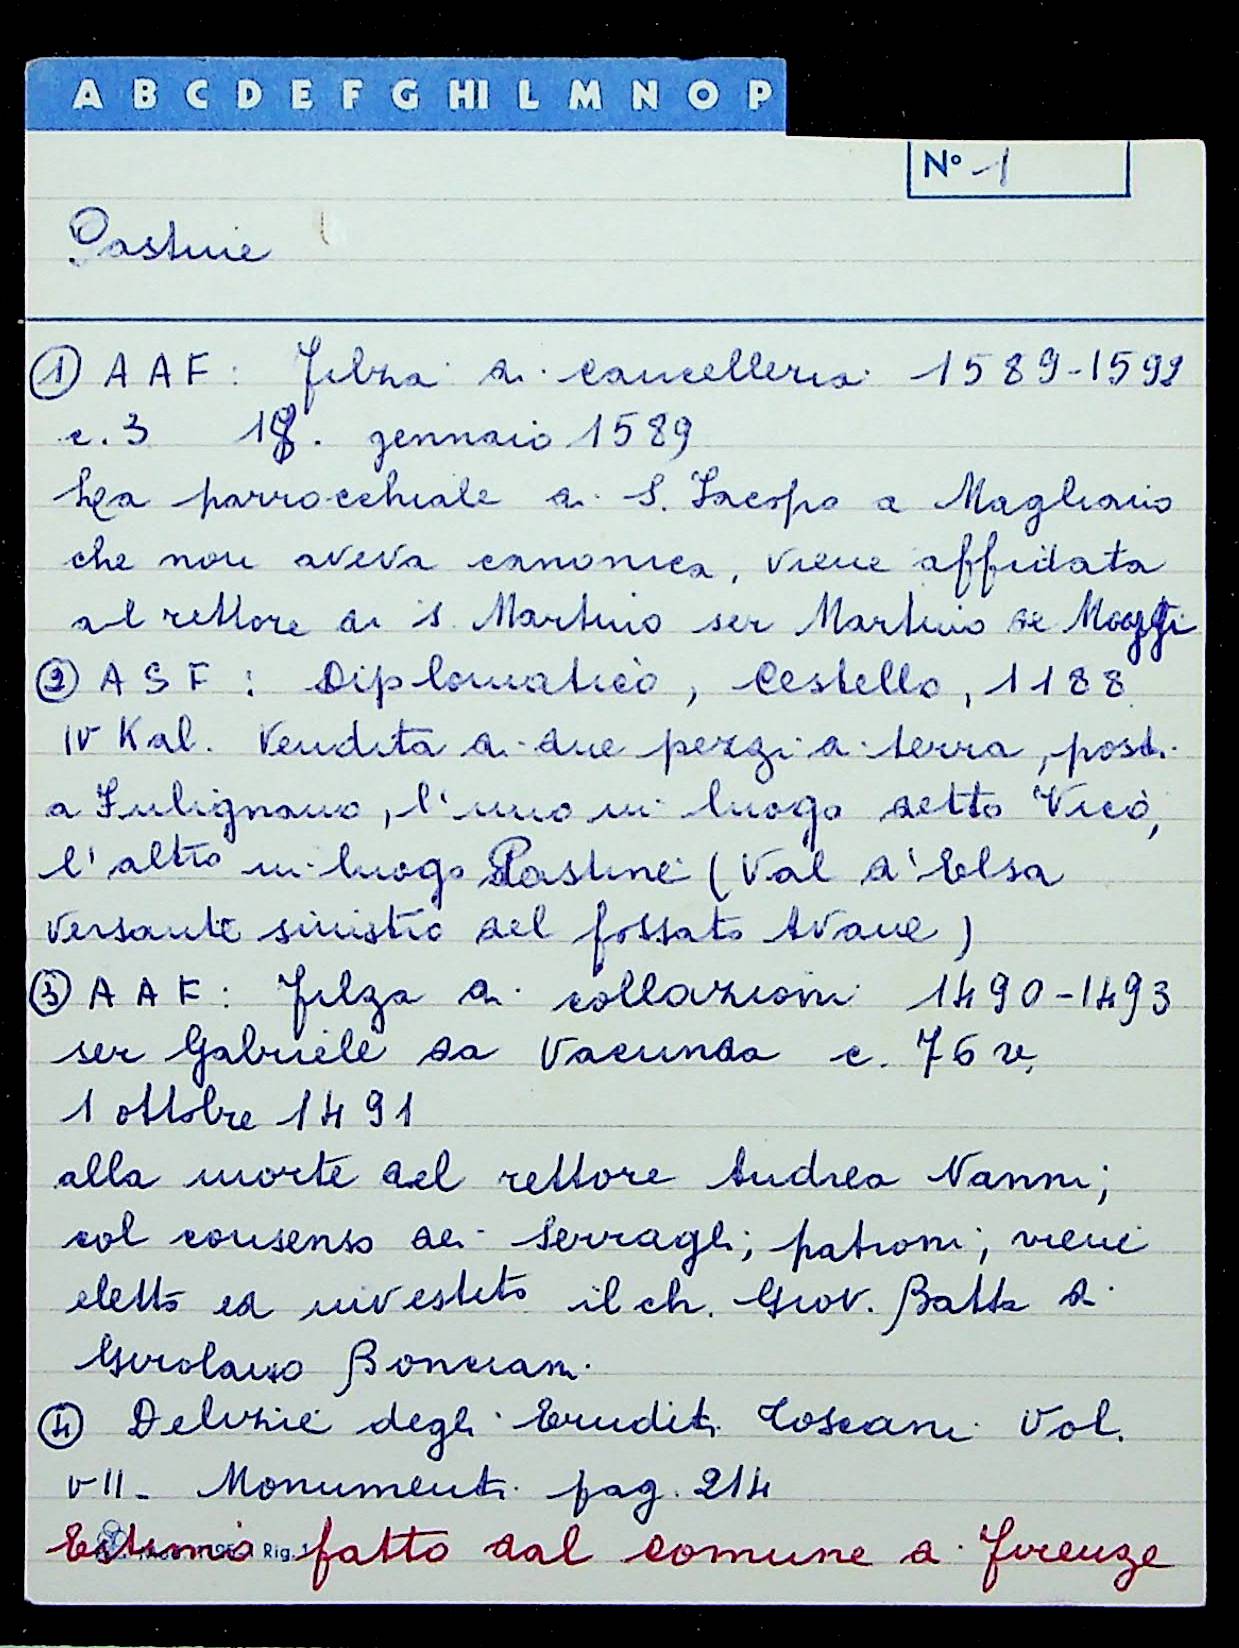 A B C D E F G HI L M N O P
N° 1
Pastine
① A A F : Filza di cancelleria 1589-1592
c. 3 18. gennaio 1589
La parrocchiale di S. Jacopo a Magliano
che non aveva canonica, viene affidata
al rettore di S. Martino ser Martino de Maggi
② A S F : Diplomatico, Cestello, 1188
IV Kal. Vendita di due pezzi di terra, posti
a Fulignano, l'uno in luogo detto Vico,
l'altro in luogo Pastine (Val d'Elsa
versante sinistro del fossato Avane)
③ A A F : Filza di collazioni 1490-1493
ser Gabriele da Vacunda c. 76 v.
1 ottobre 1491
alla morte del rettore Andrea Nanni;
col consenso dei Serragli, patroni, viene
eletto ed investito il ch. Giov. Batta di
Girolamo Bonciani
④ Delizie degli Eruditi Toscani Vol.
VII - Monumenti pag. 214
Estimo fatto dal comune di Firenze
Rig. 1